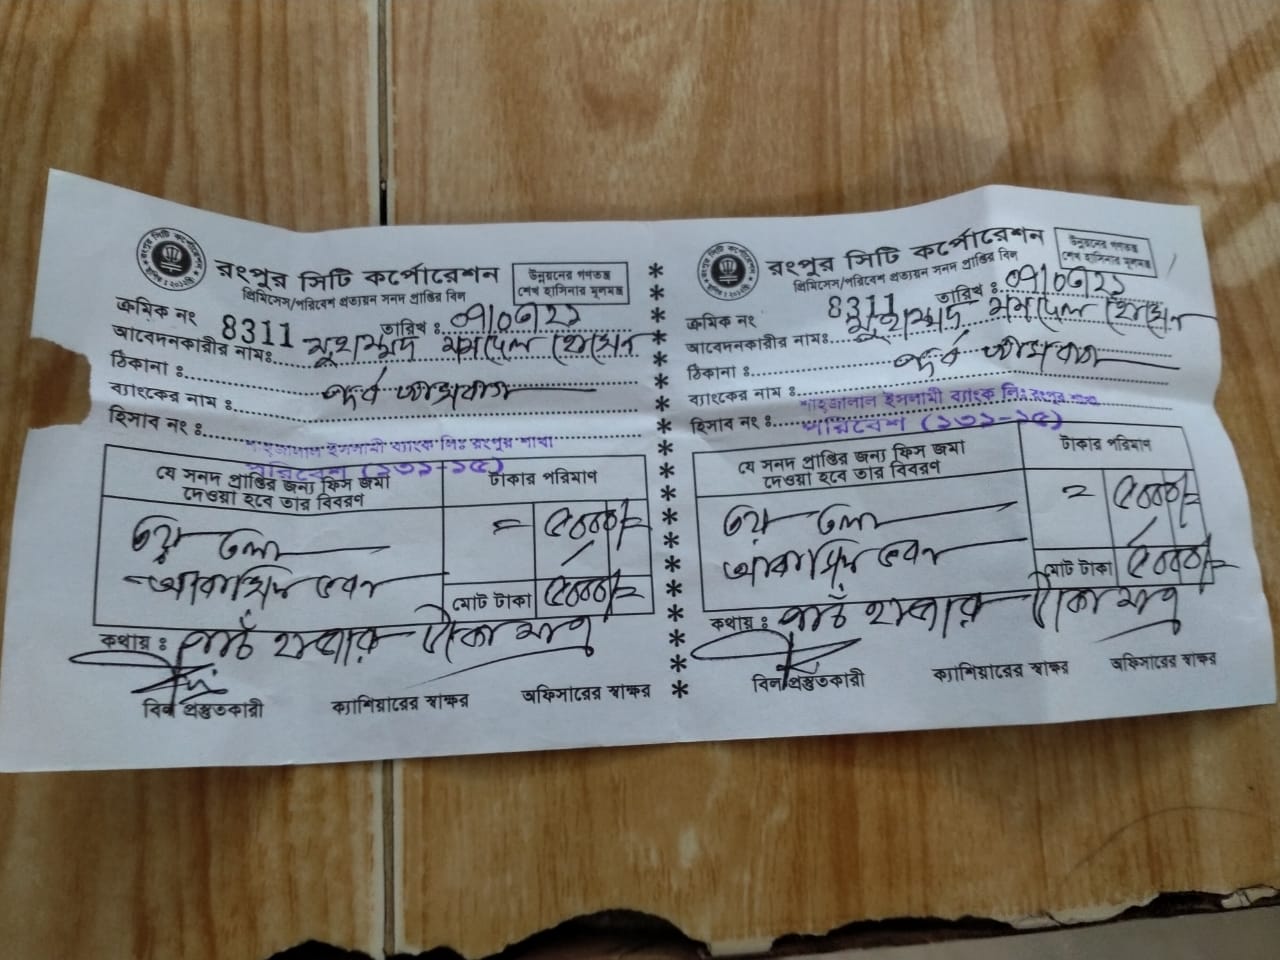 রংপুর সিটি কর্পোরেশন
উন্নয়নের গণতন্ত্র
শেখ হাসিনার মূলমন্ত্র
প্রিমিসেস/পরিবেশ প্রত্যয়ন সনদ প্রাপ্তির বিল
ক্রমিক নং 8311 তারিখ :
আবেদনকারীর নামঃ মুহাম্মদ হোসেন
ঠিকানা ঃ পূর্ব
ব্যাংকের নাম ঃ
হিসাব নং ঃ শাহজালাল ইসলামী ব্যাংক লিঃ রংপুর শাখা
পরিবেশ (১৩১-১৫)
যে সনদ প্রাপ্তির জন্য ফিস জমা দেওয়া হবে তার বিবরণ
টাকার পরিমাণ
ছয় তলা = ৫০০০/=
আবাসিক ভবন
মোট টাকা ৫০০০/=
কথায় ঃ পাঁচ হাজার টাকা মাত্র
বিল প্রস্তুতকারী ক্যাশিয়ারের স্বাক্ষর অফিসারের স্বাক্ষর
রংপুর সিটি কর্পোরেশন
উন্নয়নের গণতন্ত্র
শেখ হাসিনার মূলমন্ত্র
প্রিমিসেস/পরিবেশ প্রত্যয়ন সনদ প্রাপ্তির বিল
ক্রমিক নং 8311 তারিখ :
আবেদনকারীর নামঃ মুহাম্মদ হোসেন
ঠিকানা ঃ পূর্ব
ব্যাংকের নাম ঃ শাহজালাল ইসলামী ব্যাংক লিঃ রংপুর শাখা
হিসাব নং ঃ পরিবেশ (১৩১-১৫)
যে সনদ প্রাপ্তির জন্য ফিস জমা দেওয়া হবে তার বিবরণ
টাকার পরিমাণ
ছয় তলা = ৫০০০/=
আবাসিক ভবন
মোট টাকা ৫০০০/=
কথায় ঃ পাঁচ হাজার টাকা মাত্র
বিল প্রস্তুতকারী ক্যাশিয়ারের স্বাক্ষর অফিসারের স্বাক্ষর